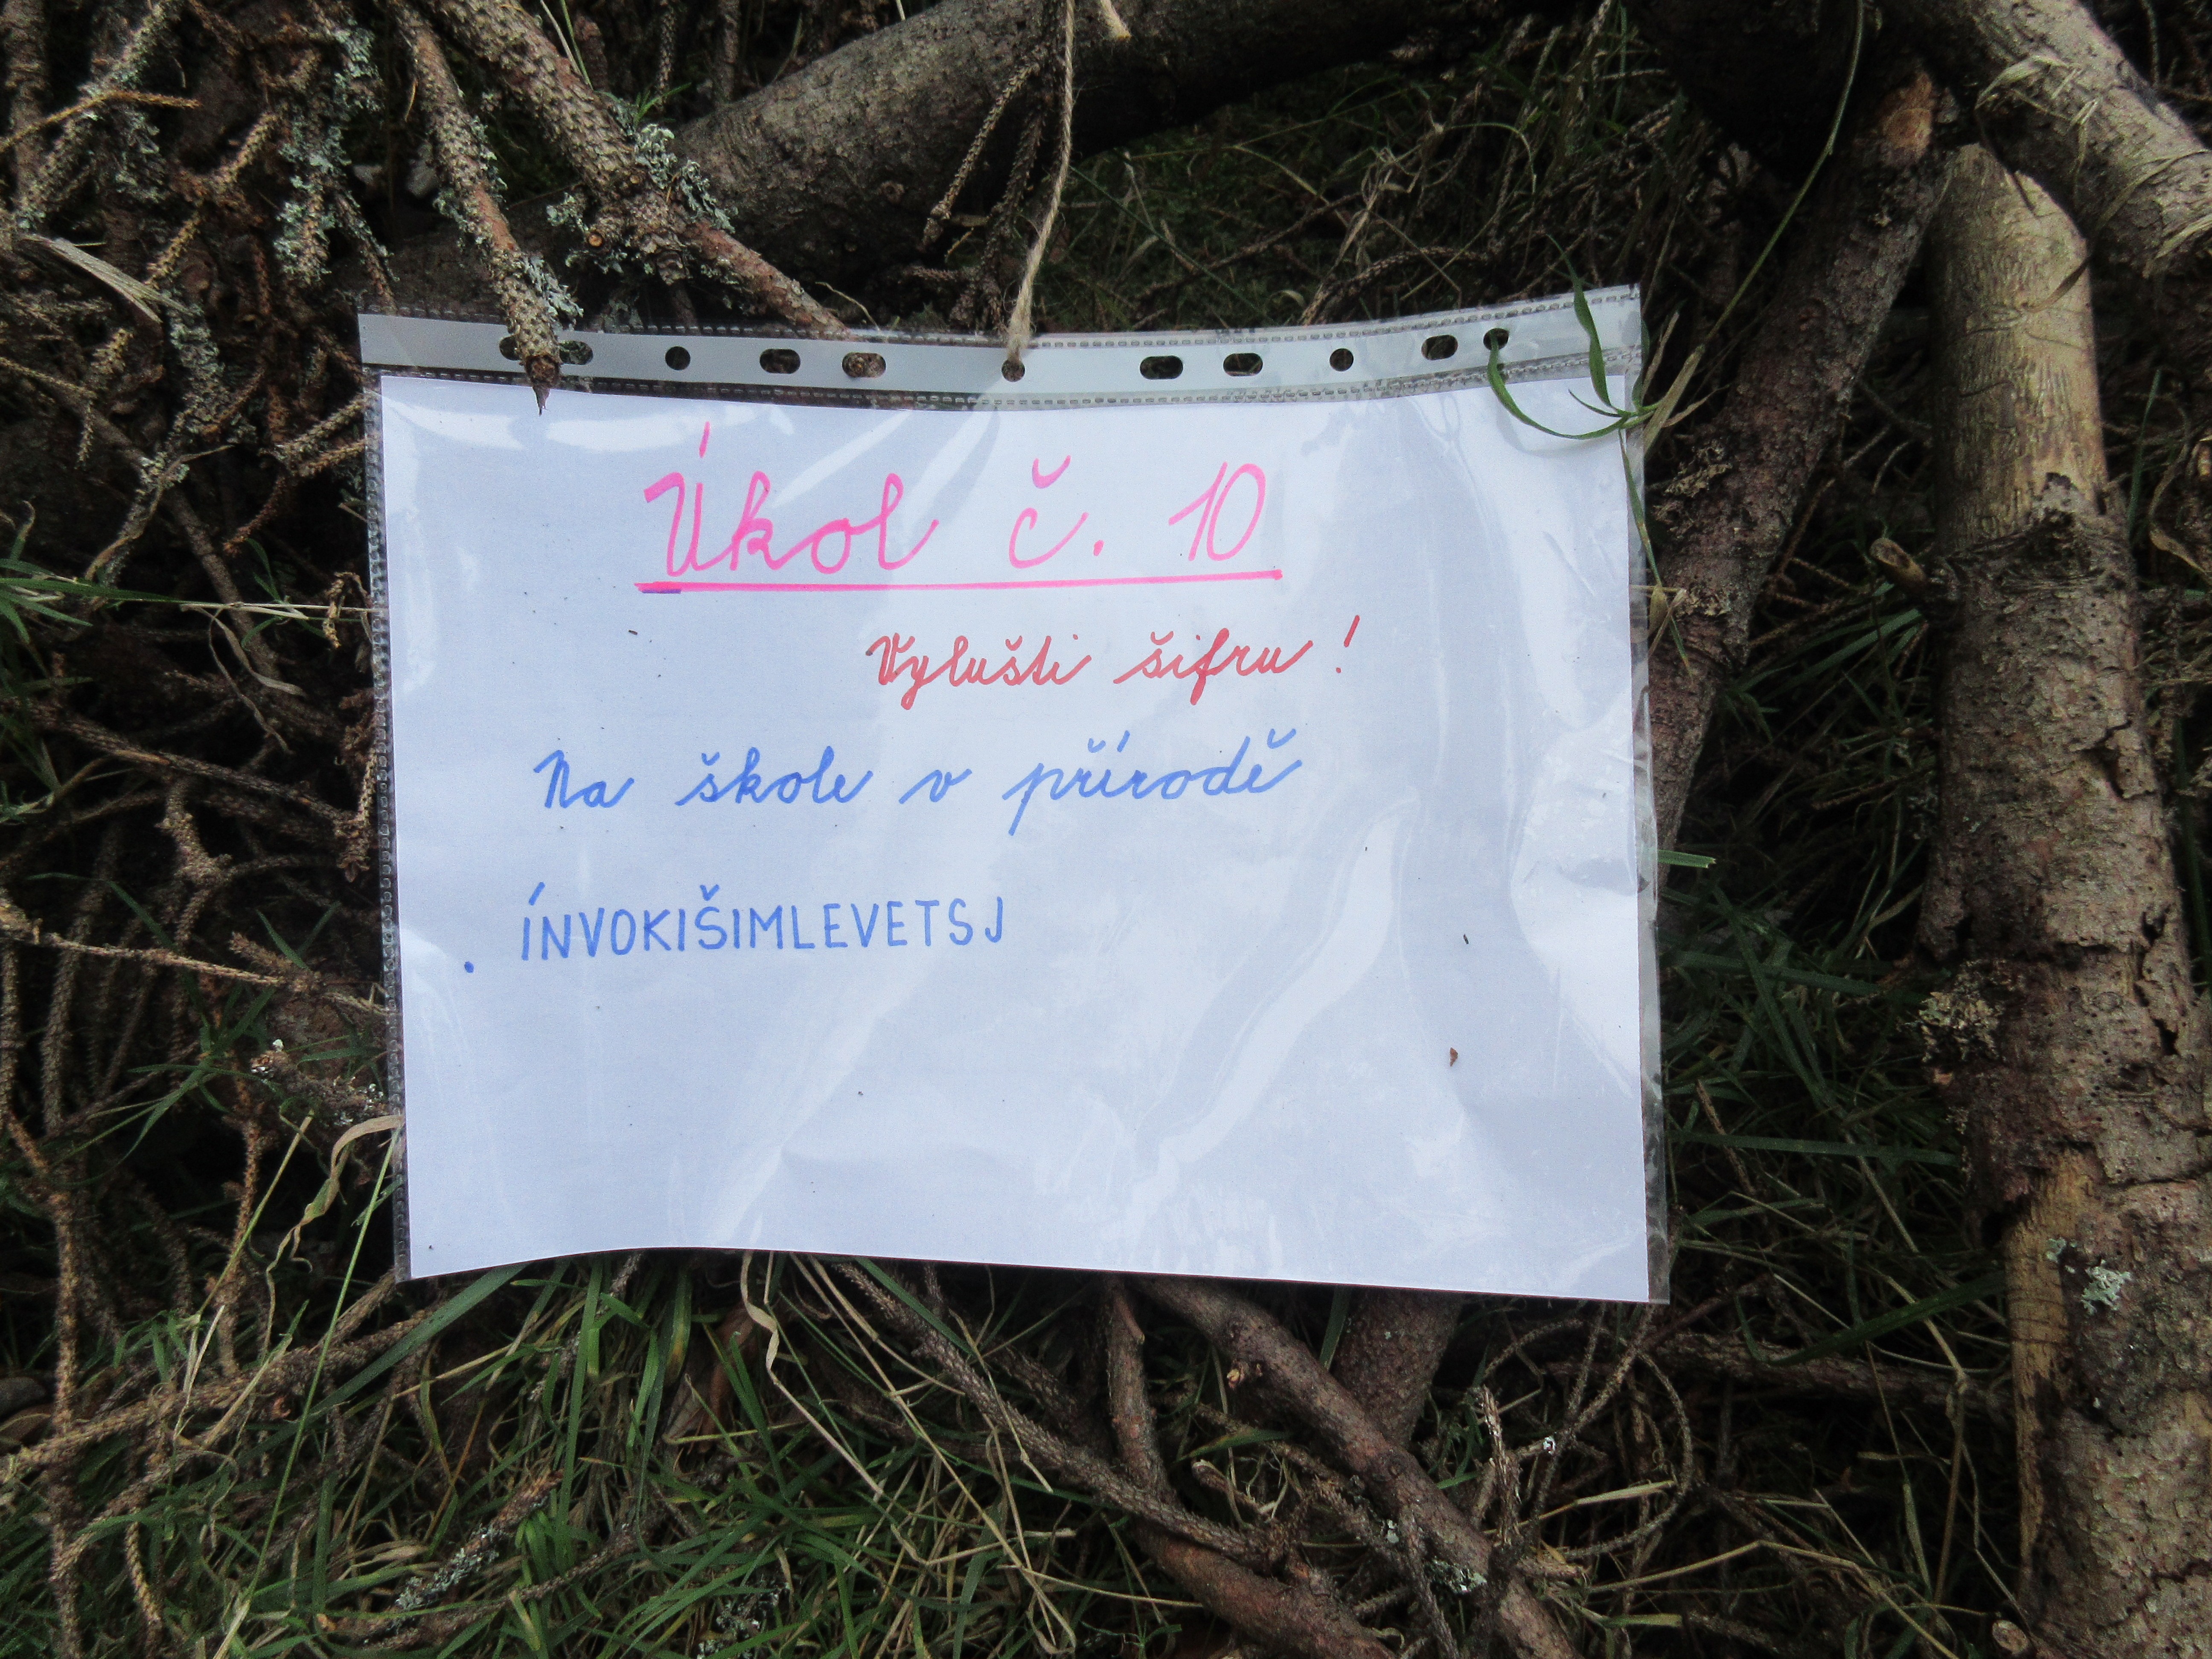 Úkol č. 10
Vylušti šifru!
Na škole v přírodě
. ÍNVOKIŠIMLEVETSJ